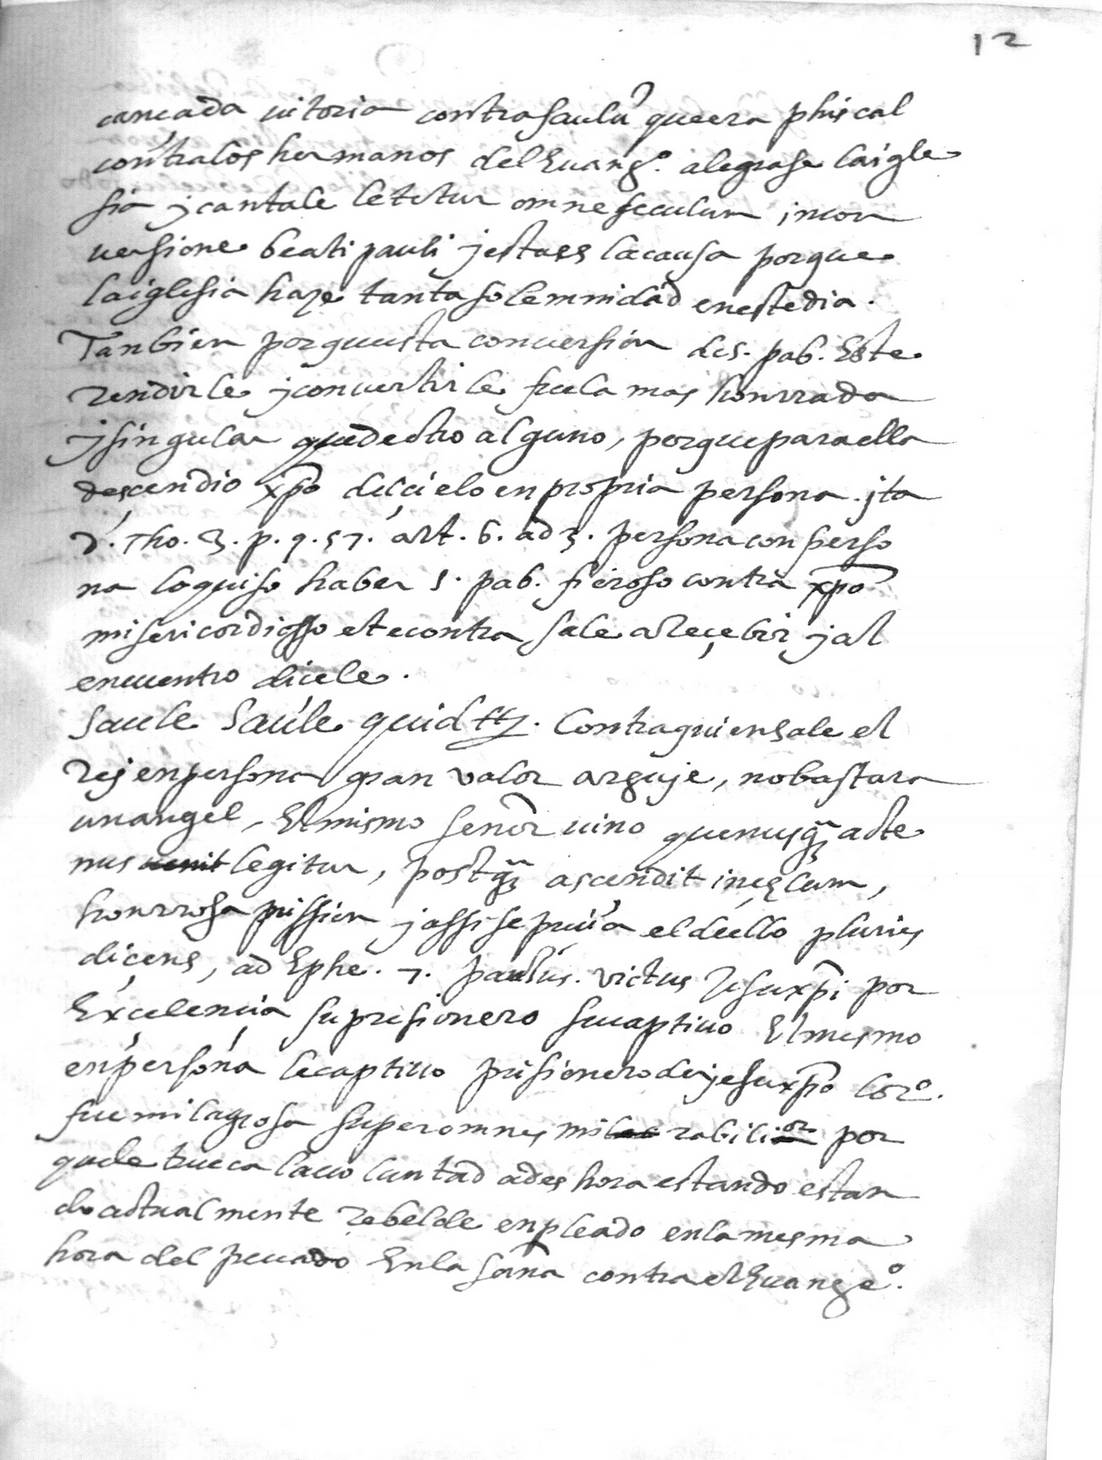 12
cancada uitoria contra saulũ que era phiscal
contralos hermanos del Euangº. alegrase laigle
sia y cantale letetur omne seculum incon
uersione beati pauli y esta es la causa porque
la iglesia haze tanta solemnidad eneste dia.
Tanbien porque esta conuersion de s. pab. Este
rendirle y conuertirle fue la mas honrrada
y singular que de otro alguno, porque para ella
descendio xpo del cielo en propria persona. jta
d. Tho. 3. p. q. 57. art. 6. ad 3. persona con perso
na lo quiso haber s. pab. fieroso contra xpo
misericordiosso et econtra, sale a reçebir y al
encuentro dicele.
Saule Saule quid ttz. Contra quien sale el
rej en persona gran valor arguje, no bastara
un angel, El mismo señor uino quenusq̃ acte
nus legitur, postq̃ ascendit in çelum,
honrrosa prission y assi se preçia el dello pluries
dicens, ad Ephe. 7. paulus. victus Jesuxpi por
Excelencia su prisionero su captiuo El mesmo
en persona le captiuo prisionero de jesuxpo lo 2º.
fue milagrosa super omnes mirabilior por
que le trueca la uoluntad a des hora estando estan
do actualmente rebelde enpleado en la mesma
hora del peccado En la saña contra el Euangeº.